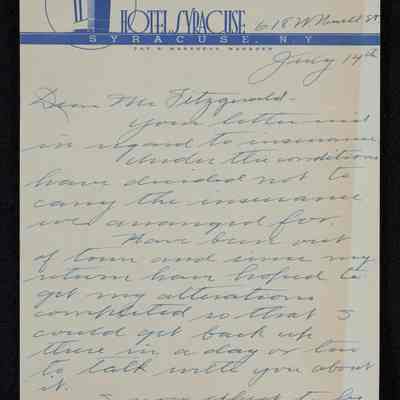 HOTEL SYRACUSE
SYRACUSE, N.Y.
July 14th
Dear Mr Fitzgerald -
Your letter
in regard to insurance
Under the conditions
have decided not to
carry the insurance
we arranged for.
Have been out
of town and since my
return have hoped to
get my alterations
completed so that I
could get back up
there in a day or two
to talk with you about
it.
I